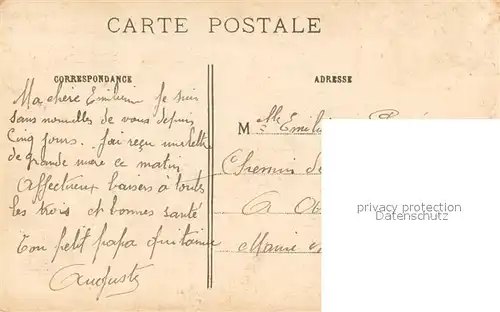 CARTE POSTALE
CORRESPONDANCE
ADRESSE
Ma chère Emilienne je suis
sans nouvelles de vous depuis
Cinq jours.. J'ai reçu une lettre
de grande mère ce matin
Affectueux baisers à toutes
les trois et bonnes santé
Ton petit papa
Auguste
M elle
Chemin de
A
Mairie
privacy protection
Datenschutz